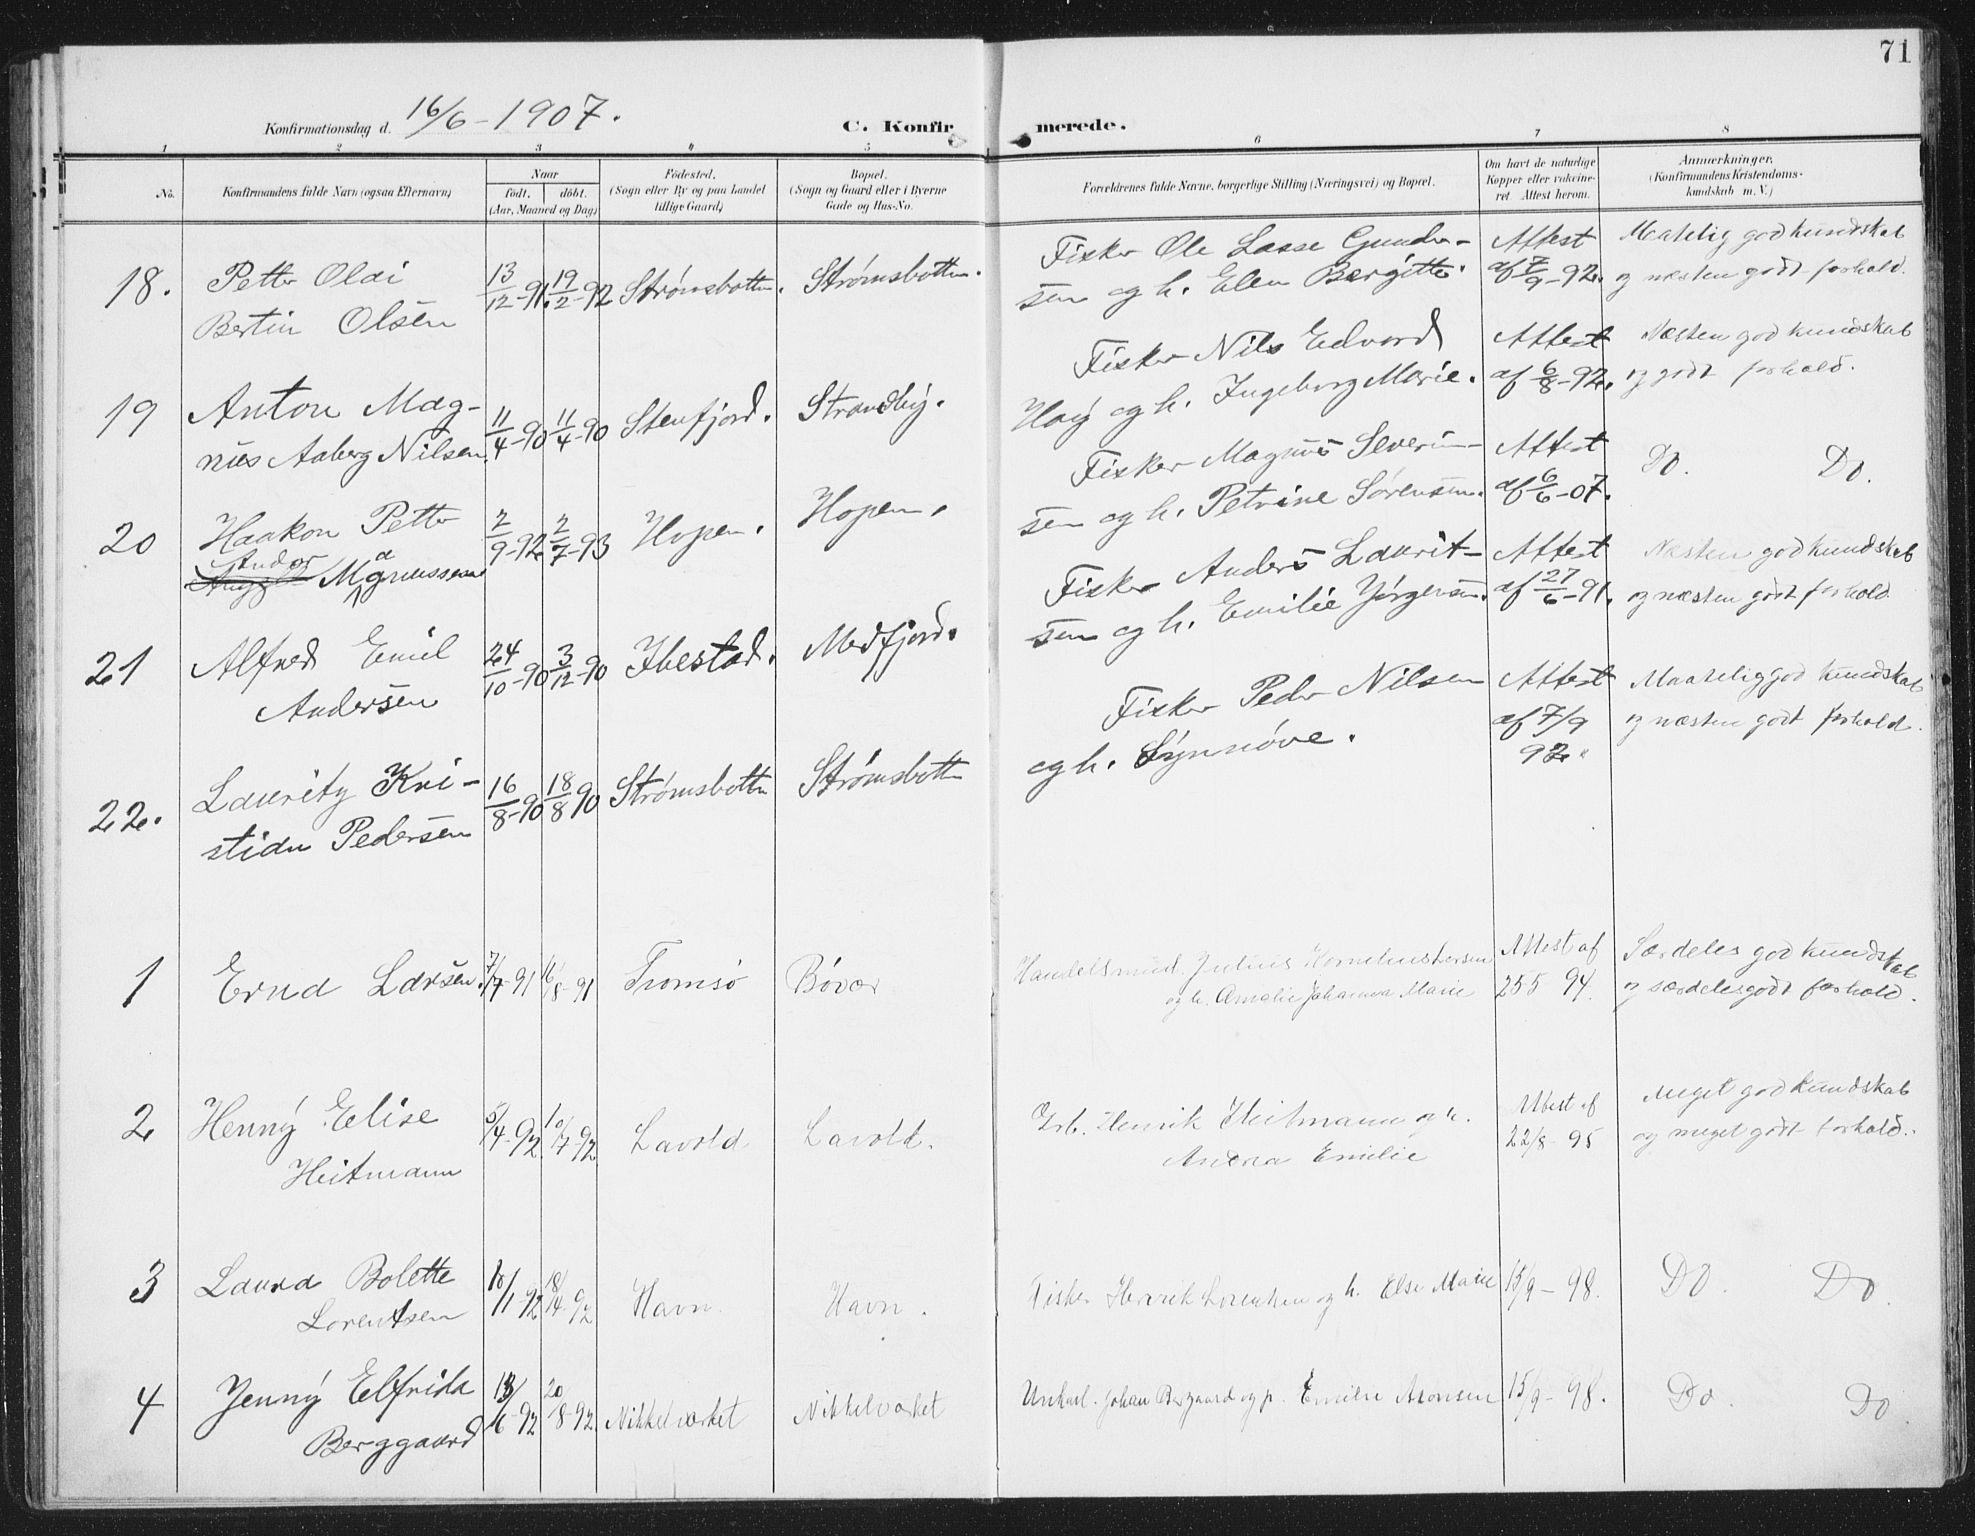 71
Konfirmationsdag d. 16/6-1907.
C. Konfirmerede.
1 2 3 4 5 6 7 8
No.
Konfirmandens fulde Navn (ogsaa Efternavn)
Naar
födt. döbt.
(Aar, Maaned og Dag)
Födested.
(Sogn eller By og paa Landet
tillige Gaard)
Bopæl.
(Sogn og Gaard eller i Byerne
Gade og Hus-No.
Forældrenes fulde Navne, borgerlige Stilling (Næringsvei) og Bopæl.
Om havt de naturlige
Kopper eller vakcine-
ret. Attest herom.
Anmærkninger.
(Konfirmandens Kristendoms-
kundskab m. V.)
18. Petter Olai
Bertin Olsen
13/12-91. 19/2-92 Strømsbotten. Strømsbotten.
Fisker Ole Lasse Gunder-
sen og h. Elen Bergitte.
Attest
af 7/9-92.
Maatelig god kundskab
og næsten godt forhold.
19 Anton Mag-
nus Aaberg Nilsen.
11/4-90 11/4-90 Stenfjord. Strandby.
Fisker Nils Edvard
Haij og h. Ingeborg Marie.
Attest
af 6/8-92.
Næsten god kundskab
og godt forhold.
20 Haakon Petter
Andor Magnussen
2/9-92 2/7-93 Hopen. Hopen.
Fisker Magnus Severin-
sen og h. Petrine Sørensen.
Attest
af 6/6-07.
Do. Do.
21 Alfred Emil
Andersen
24/10-90 3/12-90 Ibestad. Medfjord.
Fisker Anders Laurit-
sen og h. Emilie Jørgensen.
Attest
af 27/6-91.
Næsten god kundskab
og næsten godt forhold.
22. Lauritz Kri-
stian Pedersen
16/8-90 18/8 90 Strømsbotten Strømsbotten
Fisker Peder Nilsen
og h. Synnøve.
Attest
af 7/9
92.
Maatelig god kundskab
og næsten godt forhold.
1 Erna Larsen. 7/7-91 16/8-91 Tromsø Bøvær
Handelsmand. Julius Kornelius Larsen
og h. Amalie Johanna Marie
Attest af
25 5 94.
Særdeles god kundskab
og særdeles godt forhold.
2 Henny Elise
Heitmann
5/4-92 10/7-92. Lavold Lavold.
Grb. Henrik Heitmann og h.
Andrea Emilie
Attest af
22/8-95
Meget god kundskab
og meget godt forhold.
3 Laura Bolette
Lorentsen
10/1-92 18/4-92 Havn. Havn.
Fisker Henrik Lorentsen og h. Else Marie
15/9-98.
Do. Do.
4 Jenny Elfrida
Berggaard
13/6-92 20/8-92. Nikkelværket Nikkelværket
Unkarl. Johan Bergaard og p. Emilie Aronsen
15/9-98.
Do. Do